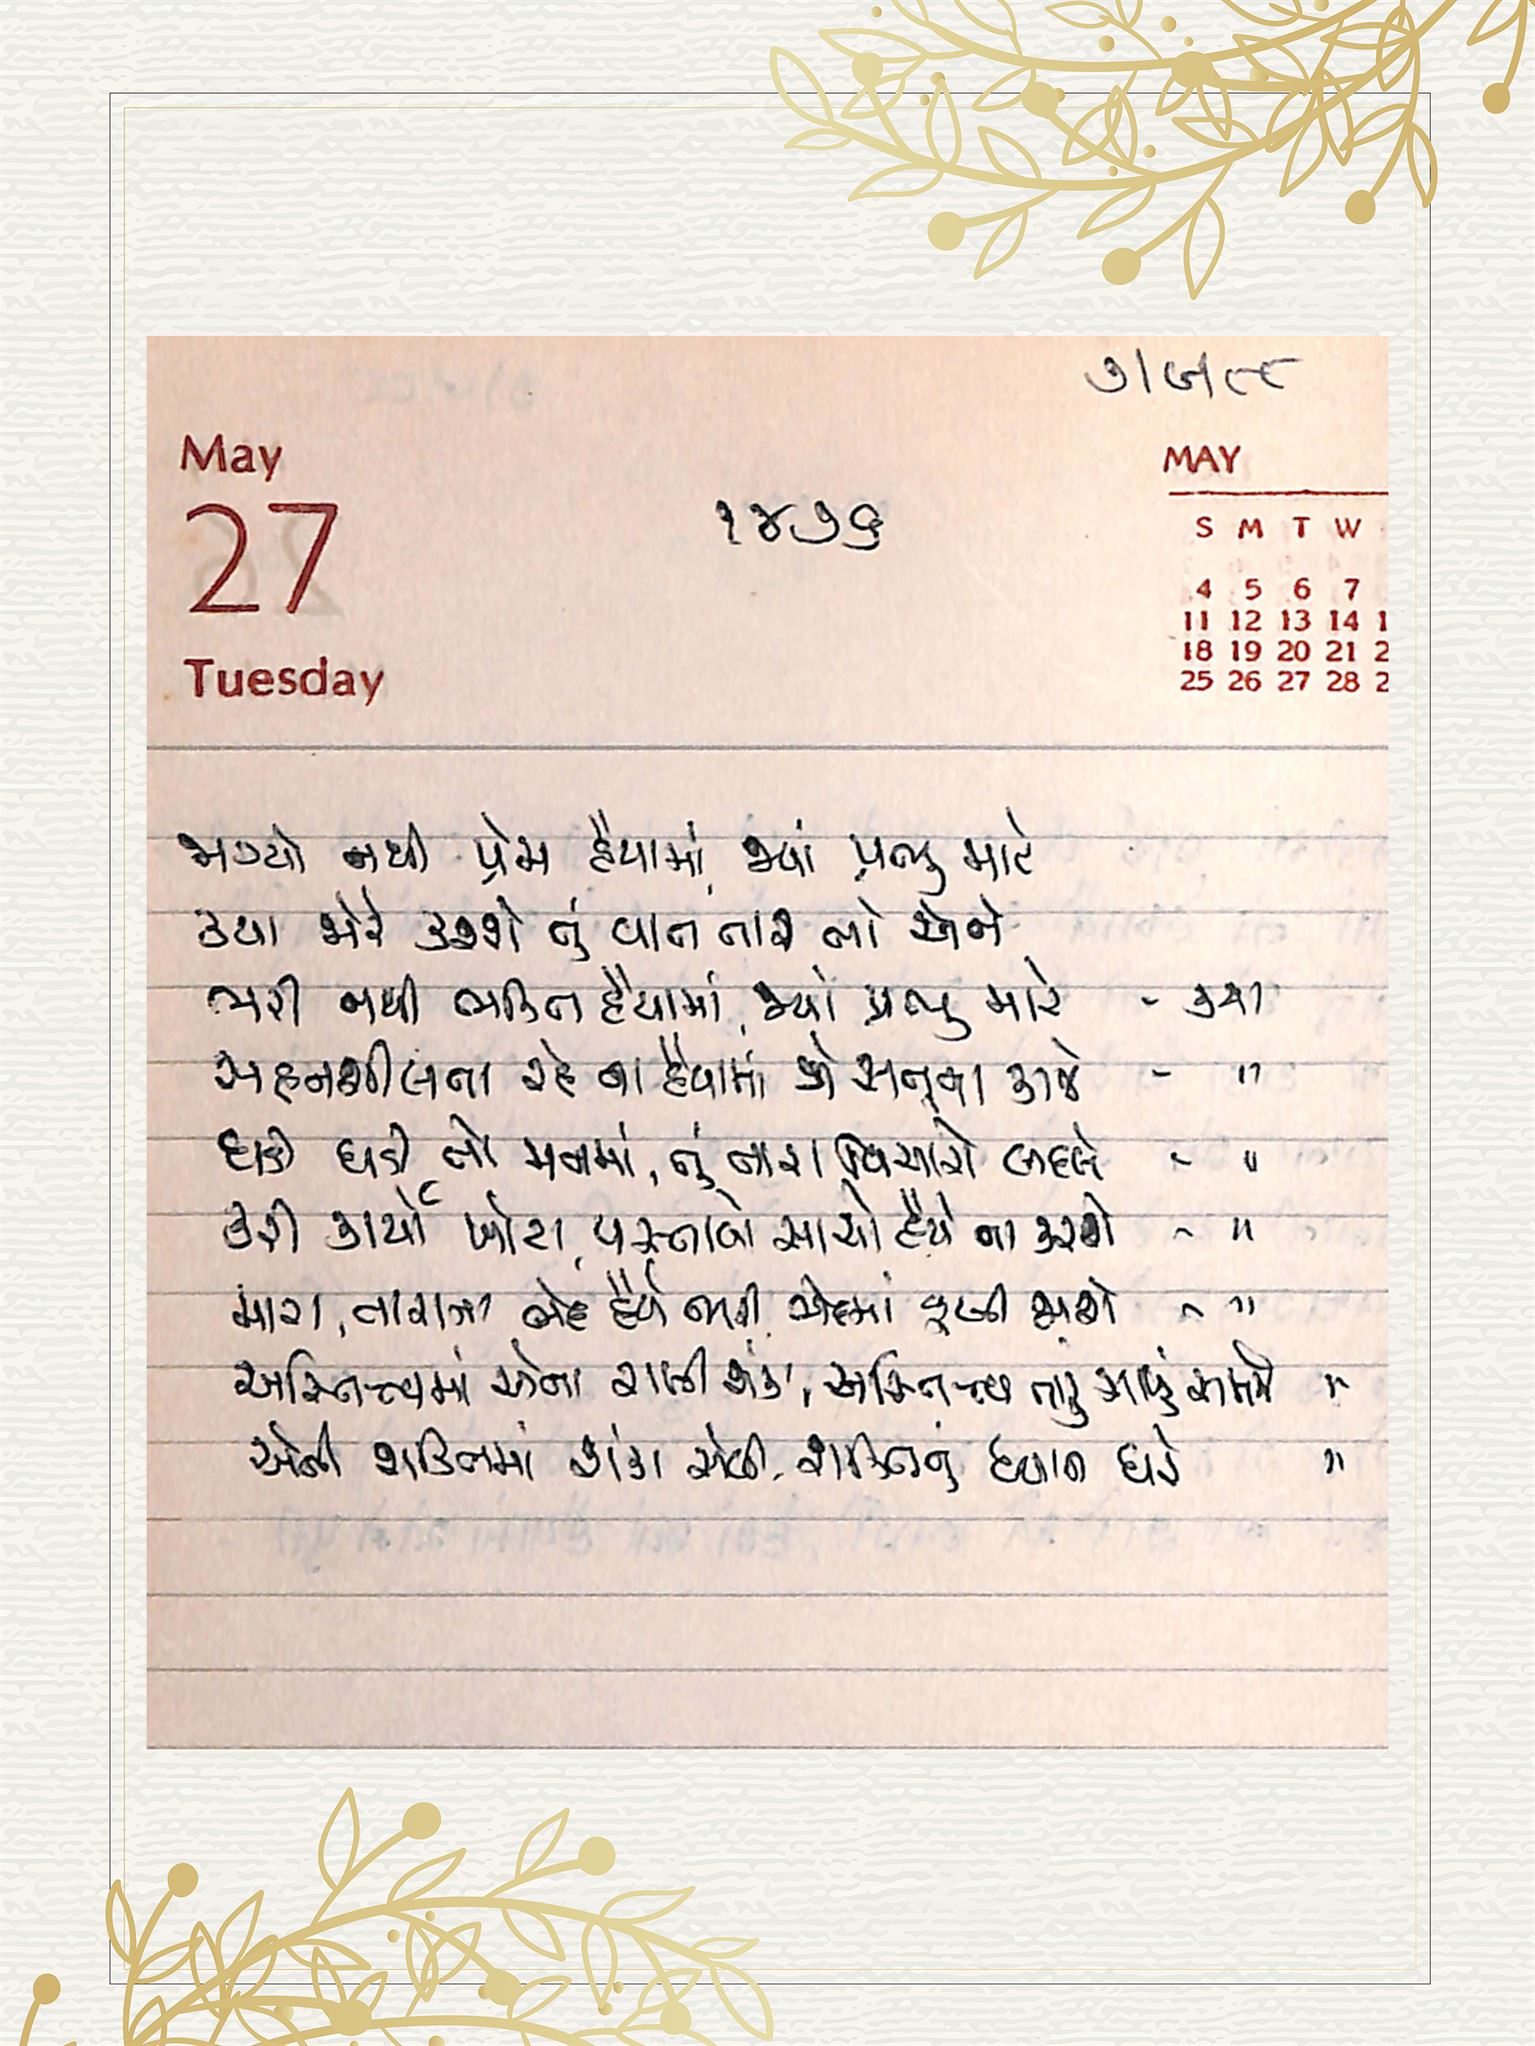 ૭|૯|૮૮
May
27
Tuesday
૧૪૭૬
MAY
S M T W
4 5 6 7
11 12 13 14 1
18 19 20 21 2
25 26 27 28 2
જાગ્યો નથી પ્રેમ હૈયામાં, જ્યાં પ્રભુ માટે
કયા મોઢે કરશે તું વાત તારી તો એને
ભરી નથી ભક્તિ હૈયામાં, જ્યાં પ્રભુ માટે - કયા
સહનશીલતા રહે ના હૈયામાં જો સત્યના કાજે - "
ઘડી ઘડી તો મનમાં, તું તારા વિચારો બદલે - "
કરી કાર્યો ખોટા, પસ્તાવો સાચો હૈયે ના કરશે - "
મારા, તારાના ભેદ હૈયે ભરી, એમાં ડૂબી જાશે - "
અસ્તિત્વમાં એના રાખી શંકા, અસ્તિત્વ તારું સાચું સમજે "
એની શક્તિમાં શંકા સેવી, શક્તિનું ધ્યાન ધરે "